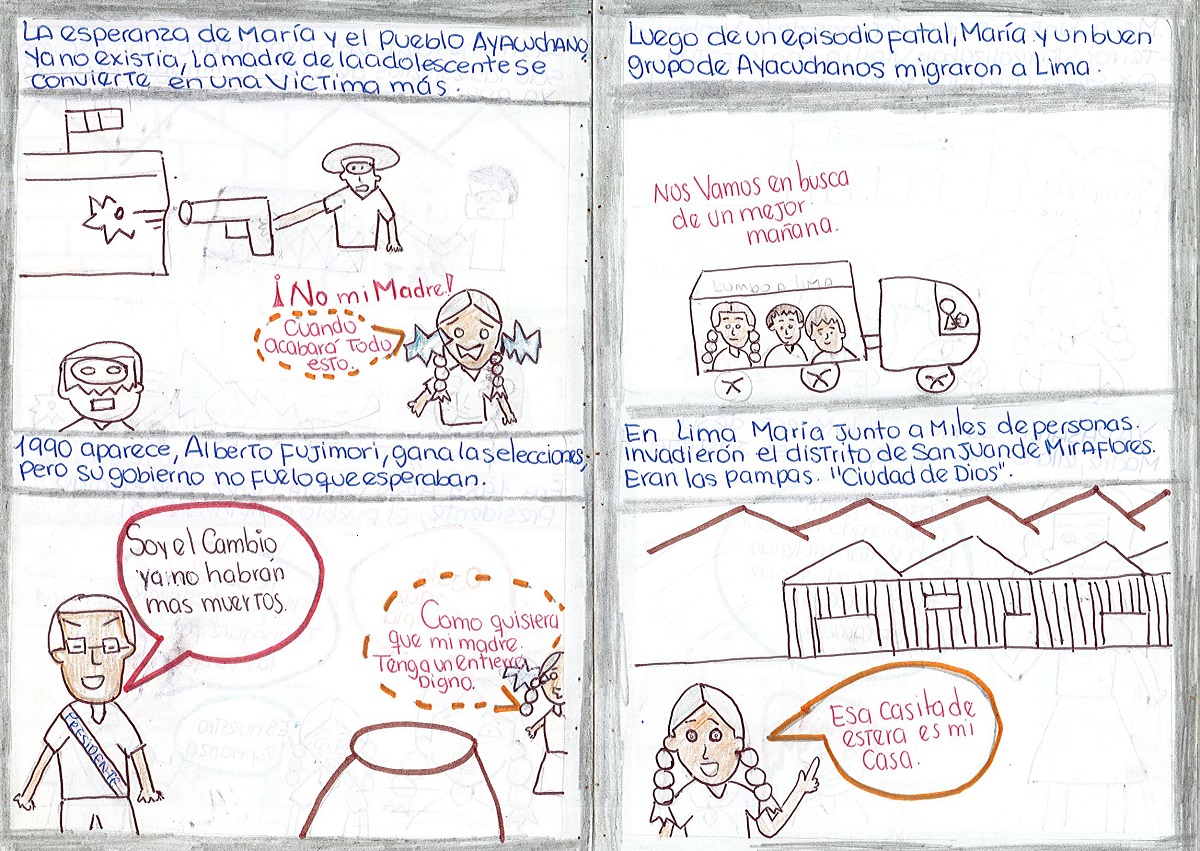 LA esperanza de María y el pueblo AYACUCHANO,
ya no existia, La madre de la adolescente se
convierte en una VICTima más.
¡No mi Madre!
Cuando
acabará Todo
esto.
1990 aparece, Alberto Fujimori, gana las elecciones,
pero su gobierno no fue lo que esperaban.
Soy el Cambio
ya no habrán
mas muertos.
PRESIDENTE
Como quisiera
que mi madre.
Tenga un entierro
Digno.
Luego de un episodio fatal, María y un buen
grupo de Ayacuchanos migraron a Lima.
Nos Vamos en busca
de un mejor
mañana.
En Lima María junto a Miles de personas.
invadieron el distrito de San Juan de Miraflores.
Eran las pampas. "Ciudad de Dios".
Esa Casita de
estera es mi
Casa.